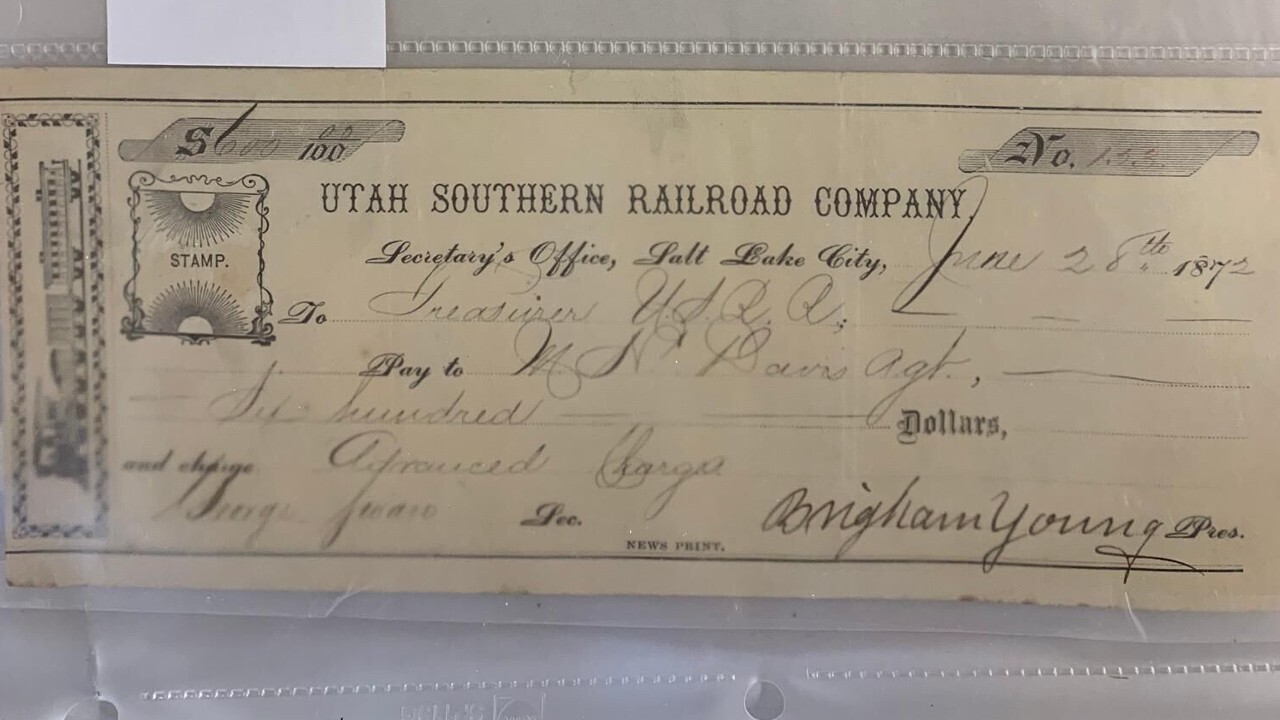 $600 00/100
No. 133
UTAH SOUTHERN RAILROAD COMPANY,
STAMP.
Secretary's Office, Salt Lake City, June 28th 1872
To Treasurer U.S.R.R.
Pay to Davis Agt.,
Six hundred Dollars,
and charge Advanced Charge
George Swan Sec. Brigham Young Pres.
NEWS PRINT.